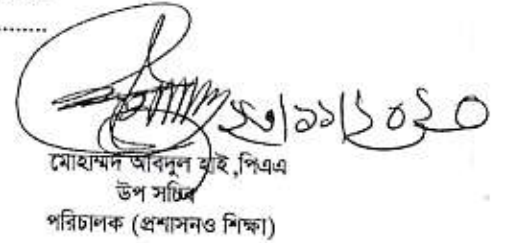 ..........
২৩/১১/২০২০
মোহাম্মদ আবদুল হাই,পিএএ
উপ সচিব
পরিচালক (প্রশাসনও শিক্ষা)